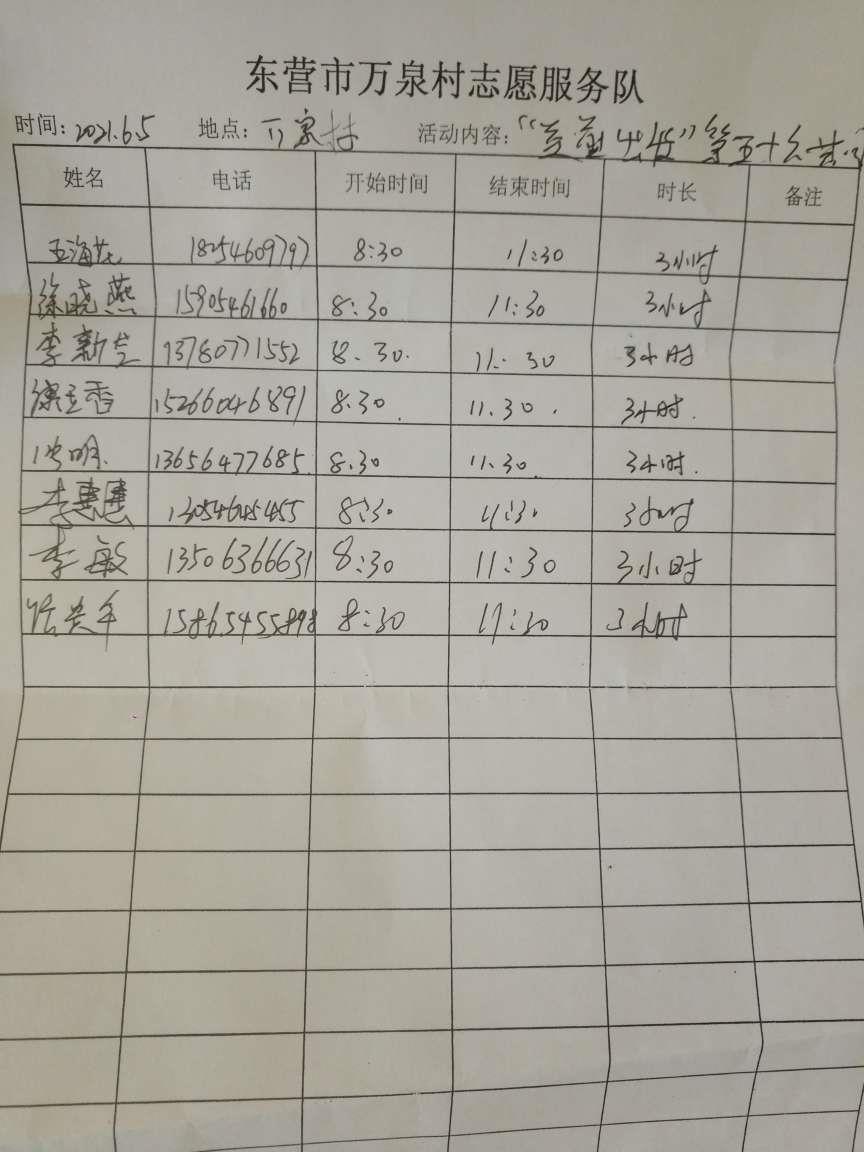 东营市万泉村志愿服务队
时间: 2021.6.5 地点: 万泉村 活动内容: “益益出发”第五十六
姓名 电话 开始时间 结束时间 时长 备注
王海花 18254609797 8:30 11:30 3小时
徐晓燕 15905461660 8:30 11:30 3小时
李新 13780771552 8.30. 11:30 3小时
徐玉香 15266046891 8.30. 11.30. 3小时.
张明. 13656477685 8.30 11.30. 3小时.
李惠 13054645455 8:30 11:30 3小时
李敏 13506366631 8:30 11:30 3小时
15865455898 8:30 11:30 3小时